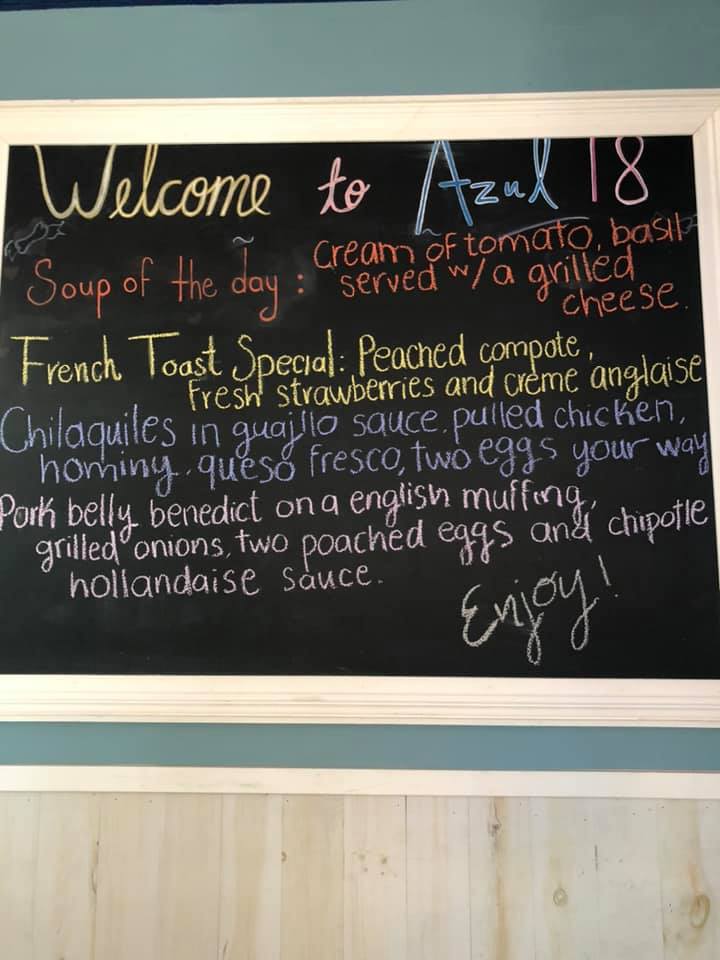 Welcome to Azul 18
Soup of the day : Cream of tomato, basil
served w/ a grilled
cheese.
French Toast Special: Peached compote,
fresh strawberries and crème anglaise
Chilaquiles in guajllo sauce, pulled chicken,
hominy, queso fresco, two eggs your way
Pork belly benedict on a english muffing,
grilled onions, two poached eggs and chipotle
hollandaise sauce.
Enjoy!